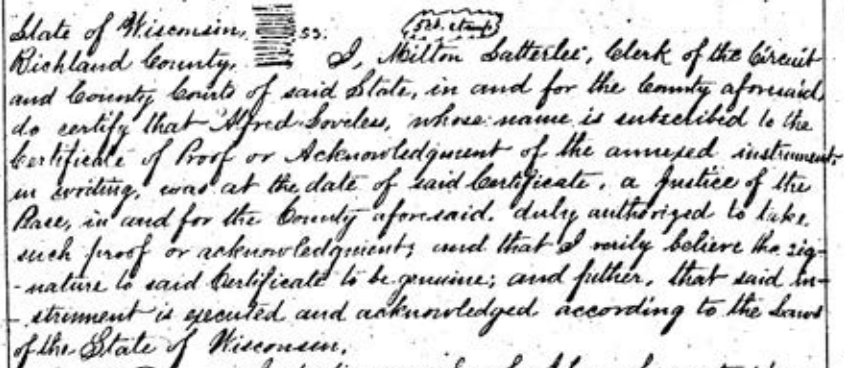 State of Wisconsin, ss. (5ct. stamp)
Richland County, I, Milton Satterlee, Clerk of the Circuit
and County Courts of said State, in and for the County aforesaid,
do certify that Alfred Loveless, whose name is subscribed to the
Certificate of Proof or Acknowledgment of the annexed instrument,
in writing, was at the date of said Certificate, a Justice of the
Pease, in and for the County aforesaid, duly authorized to take
such proof or acknowledgments; and that I verily believe the sig-
-nature to said Certificate to be genuine; and futher, that said in-
-strument is executed and acknowledged according to the Laws
of the State of Wisconsin.